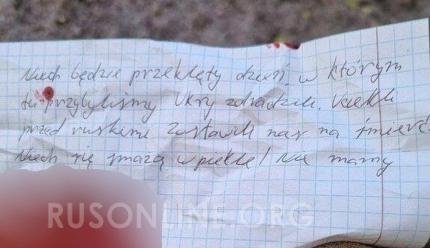 Niech będzie przeklęty dzień w którym
tu przybyliśmy Ukry zdradzili. Uciekli
przed ruskimi zostawili nas na śmierć.
Niech się smażą w piekle! Nie mamy
RUSONLINE.ORG